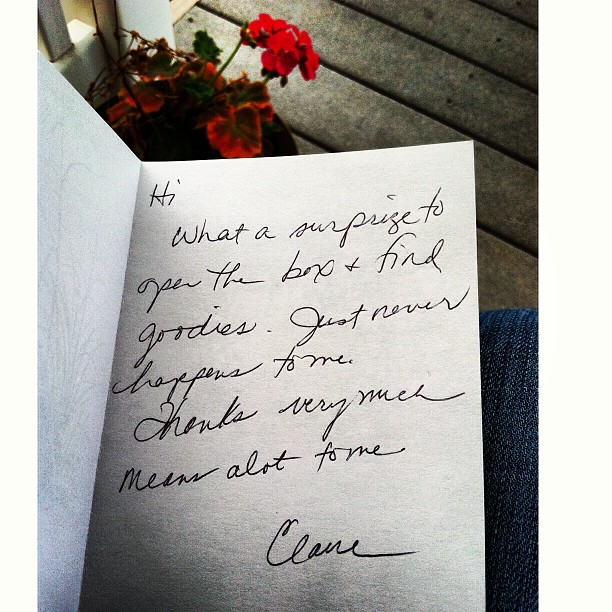 Hi
What a surprize to
open the box + find
goodies. Just never
happens to me.
Thanks very much
means alot to me.
Claire